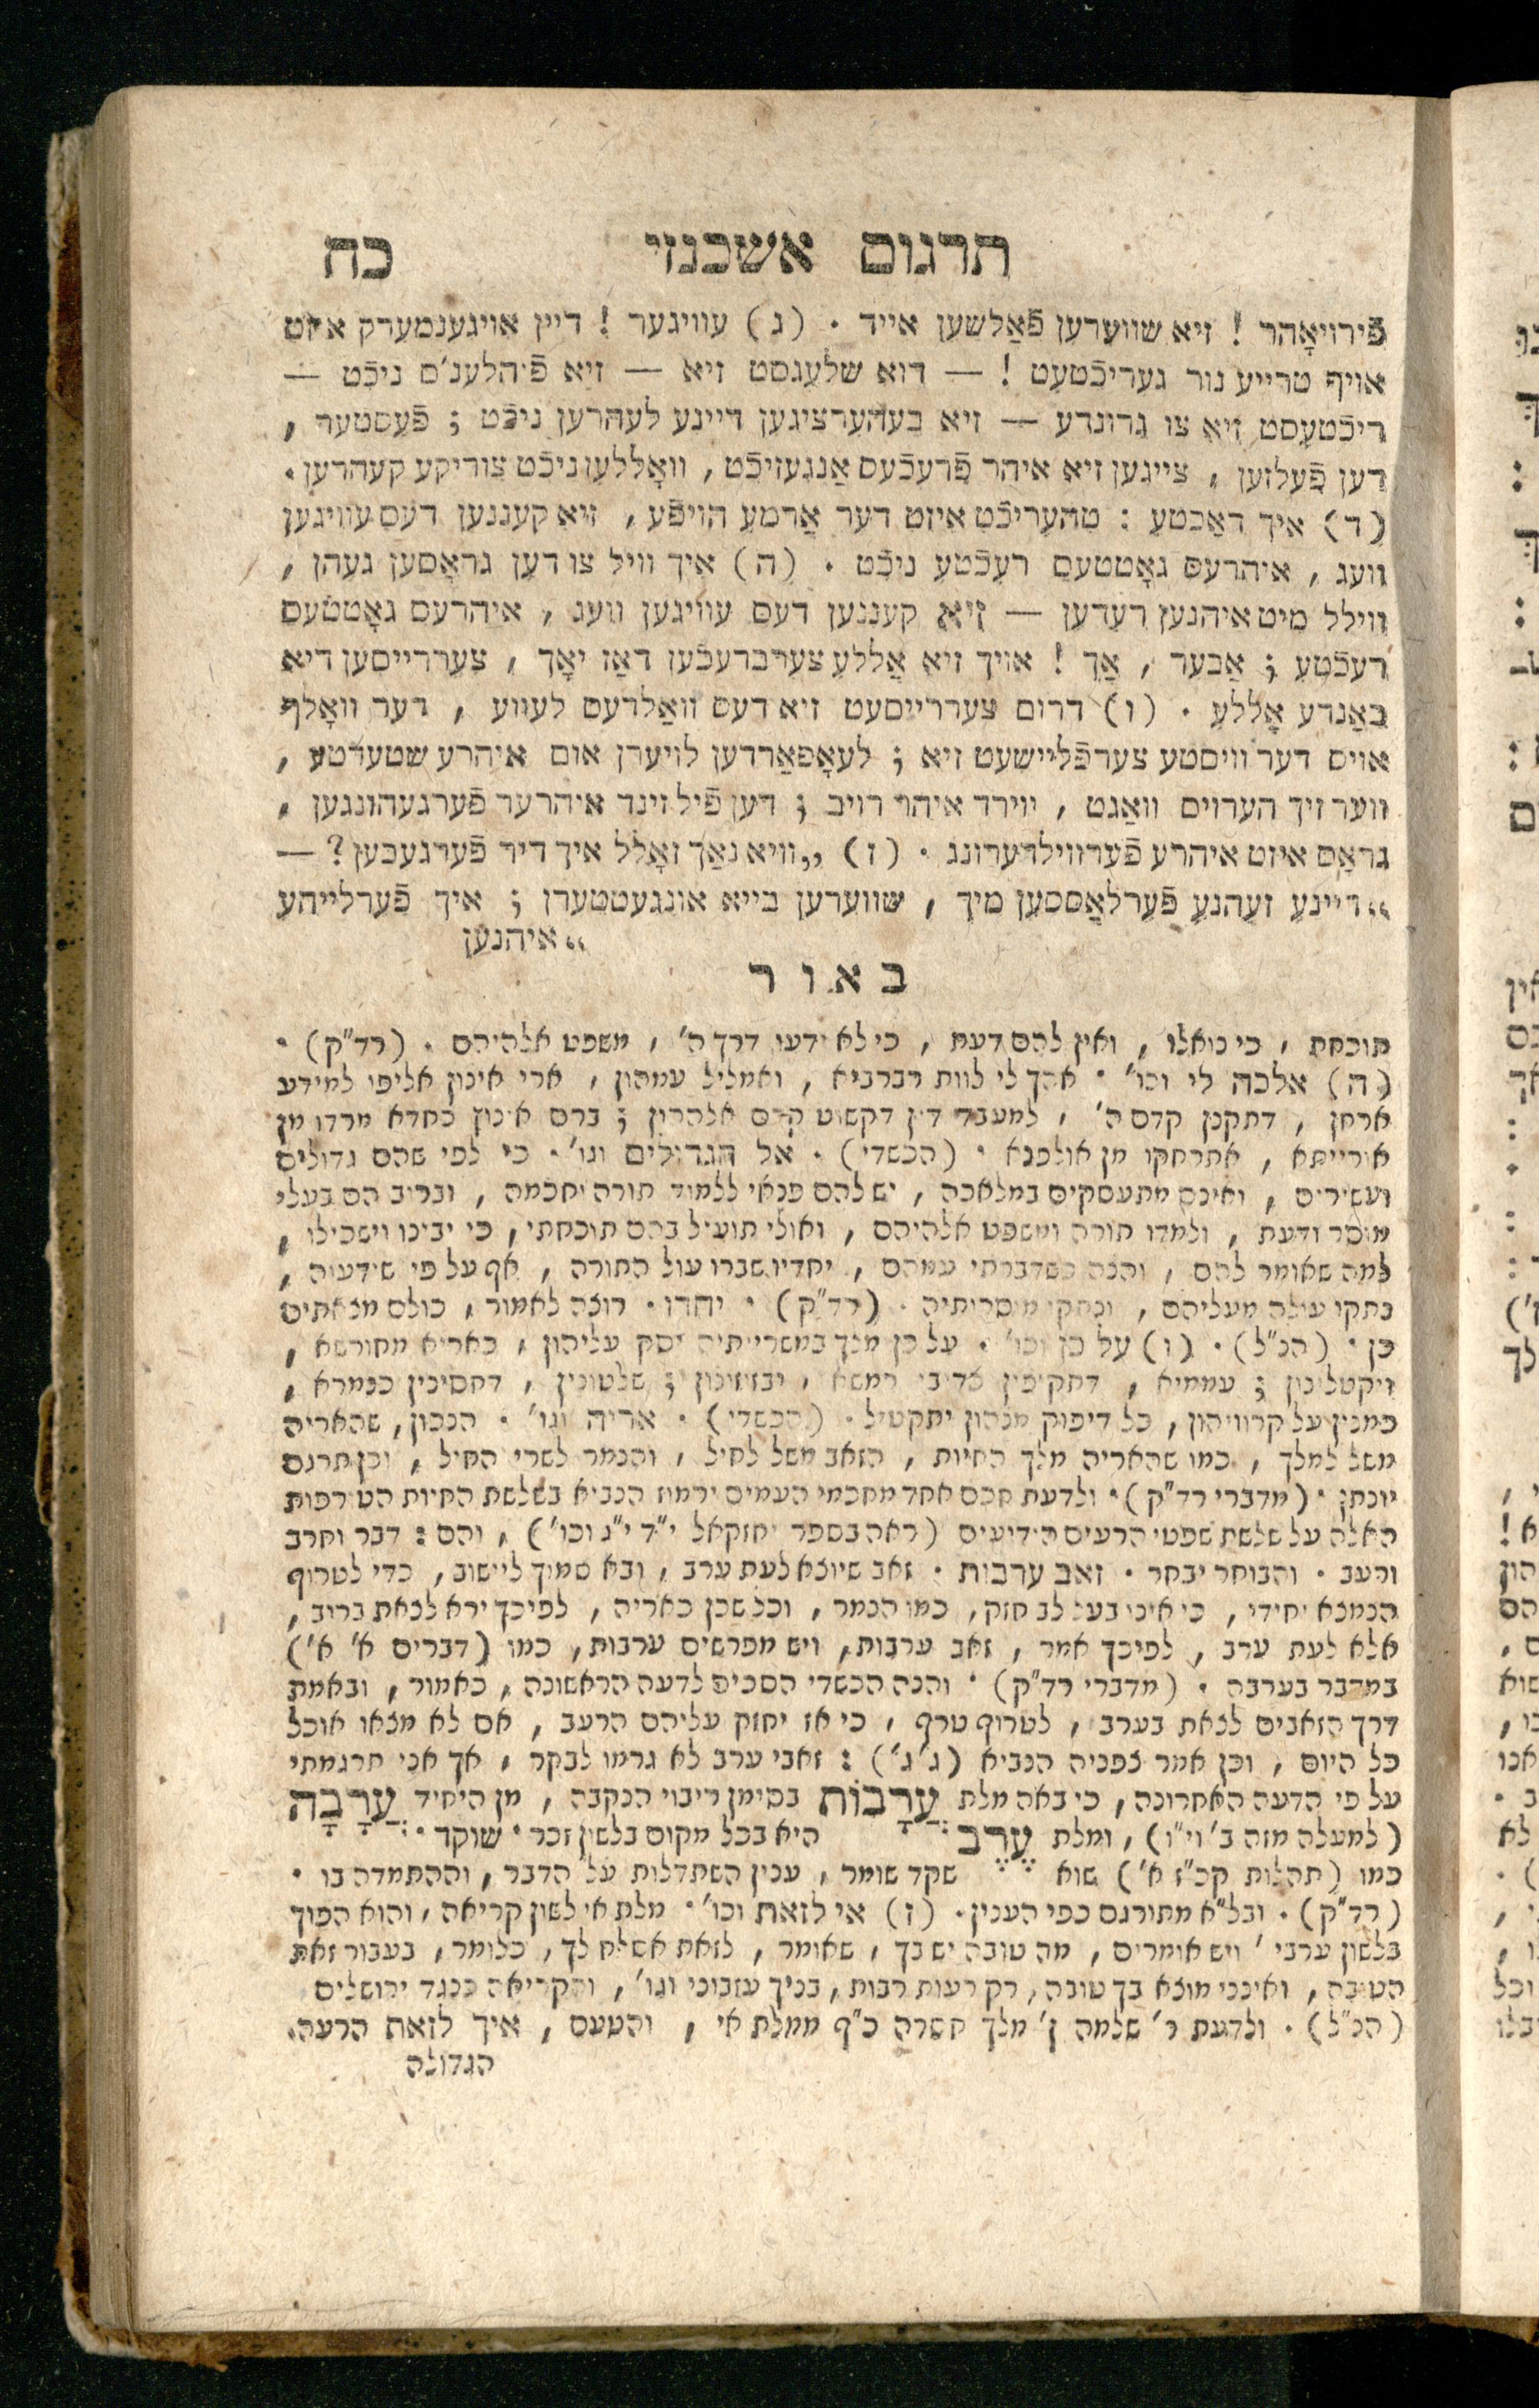 תרגום אשכנזי כח
פֿירויאָהר ! זיא שווערען פֿאַלשען אייד . (ג) עוויגער ! דיין אויגענמערק איזט
אויף טרייע נור געריכֿטעט ! — דוא שלעגסט זיא — זיא פֿיהלענ'ס ניכֿט —
ריכֿטעסט זיא צו גרונדע — זיא בעהערציגען דיינע לעהרען ניכֿט ; פֿעסטער ,
דען פֿעלזען , צייגען זיא איהר פֿרעכֿעס אַנגעזיכֿט , וואָללען ניכֿט צוריקע קעהרען .
(ד) איך דאַכטע : טהעריכֿט איזט דער אַרמע הויפֿע , זיא קעננען דעס עוויגען
וועג , איהרעס גאָטטעס רעכֿטע ניכֿט . (ה) איך וויל צו דען גראָסען געהן ,
ווילל מיט איהנען רעדען — זיא קעננען דעס עוויגען וועג , איהרעס גאָטטעס
רעכֿטע ; אַבער , אַך ! אויך זיא אַללע צערברעכֿען דאַז יאָך , צעררייסען דיא
באַנדע אַללע . (ו) דרום צעררייסעט זיא דעס וואַלדעס לעווע , דער וואָלף
אויס דער וויסטע צערפֿליישעט זיא ; לעאָפאַרדען לויערן אום איהרע שטעדטע ,
ווער זיך הערויס וואַגט , ווירד איהר רויב ; דען פֿיל זינד איהרער פֿערגעהונגען ,
גראָס איזט איהרע פֿערווילדערונג . (ז) „וויא נאַך זאָלל איך דיר פֿערגעבען ? —
„דיינע זעהנע פֿערלאַססען מיך , שווערען בייא אונגעטטערן ; איך פֿערלייהע
„איהנען
באור
תוכחת , כי נואלו , ואין להם דעת , כי לא ידעו דרך ה' , משפט אלהיהם . (רד"ק) .
(ה) אלכה לי וכו' . אהך לי לוות רברביא , ואמליל עמהון , ארי אינון אליפו למידע
ארחן , דתקנן קדם ה' , למעבד דין דקשוט קדם אלההון ; ברם אינון כחדא מרדו מן
אורייתא , אתרחקו מן אולפנא . (הכשדי) . אל הגדולים וגו' . כי לפי שהם גדולים
ועשירים , ואינם מתעסקים במלאכה , יש להם פנאי ללמוד תורה וחכמה , וברוב הם בעלי
מוסר ודעת , ולמדו תורה ומשפט אלהיהם , ואולי תועיל בהם תוכחתי , כי יבינו וישכילו ,
למה שאומר להם , והנה כשדברתי עמהם , יחדיו שברו עול התורה , אף על פי שידעוה ,
נתקו עולה מעליהם , ונתקו מוסרותיה . (רד"ק) . יחדו . רוצה לאמור , כולם מצאתים
כן . (הנ"ל) . (ו) על כן וכו' . על כן מלך במשרייתיה יסק עליהון , כאריא מחורשא ,
ויקטלינון ; עממיא , דתקיפין כדיבי רמשא , יבזזונון ; שלטונין , דחסינין כנמרא ,
כמנין על קרוויהון , כל דיפוק מנהון יתקטיל . (הכשדי) . אריה וגו' . הנכון , שהאריה
משל למלך , כמו שהאריה מלך החיות , הזאב משל לחיל , והנמר לשרי החיל , וכן תרגם
יונתן . (מדברי רד"ק) . ולדעת חכם אחד מחכמי העמים ירמוז הנביא בשלשת החיות הטורפות
האלה על שלשת שפטי הרעים הידועים (ראה בספר יחזקאל י"ד י"ג וכו') , והם : דבר וחרב
ורעב . והבוחר יבחר . זאב ערבות . זאב שיוצא לעת ערב , ובא סמוך ליישוב , כדי לטרוף
הנמצא יחידי , כי אינו בעל לב חזק , כמו הנמר , וכל שכן כאריה , לפיכך ירא לצאת ברוב ,
אלא לעת ערב , לפיכך אמר , זאב ערבות , ויש מפרשים ערבות , כמו (דברים א' א')
במדבר בערבה . (מדברי רד"ק) . והנה הכשדי הסכים לדעה הראשונה , כאמור , ובאמת
דרך הזאבים לצאת בערב , לטרוף טרף , כי אז יחזק עליהם הרעב , אם לא מצאו אוכל
כל היום , וכן אמר צפניה הנביא (ג' ג') : זאבי ערב לא גרמו לבקר , אך אני תרגמתי
על פי הדעה האחרונה , כי באה מלת עֲרָבוֹת בסימן ריבוי הנקבה , מן היחיד עֲרָבָה
(למעלה מזה ב' וי"ו) , ומלת עֶרֶב היא בכל מקום בלשון זכר . שוקד .
כמו (תהלות קכ"ז א') שוא שקד שומר , ענין השתדלות על הדבר , וההתמדה בו .
(רד"ק) . ובל"א מתורגם כפי הענין . (ז) אי לזאת וכו' . מלת אי לשון קריאה , והוא הפוך
בלשון ערבי , ויש אומרים , מה טובה יש בך , שאומר , לזאת אסלח לך , כלומר , בעבור זאת
הטובה , ואינני מוצא בך טובה , רק רעות רבות , בניך עזבוני וגו' , והקריאה כנגד ירושלים
(הנ"ל) . ולדעת ר' שלמה ן' מלך חסרה כ"ף ממלת אי , והטעם , איך לזאת הרעה
הגדולה